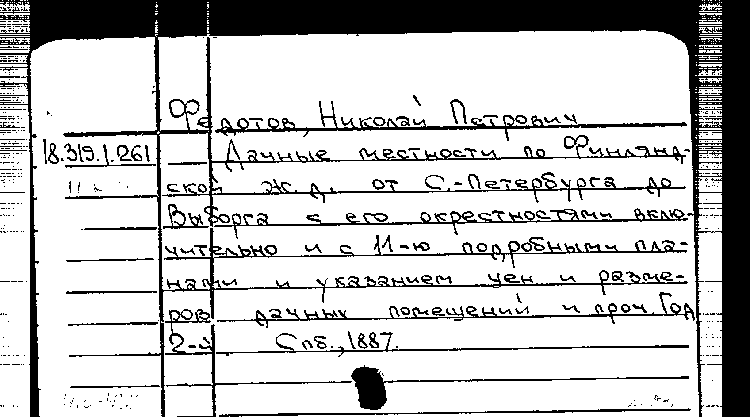 Федотов, Николай Петрович
18.319.1.261 Дачные местности по Финлянд-
ской ж.д. от С.-Петербурга до
Выборга с его окрестностями вклю-
чительно и с 11-ю подробными пла-
нами и указанием цен и разме-
ров дачных помещений и проч. Год
2-й. Спб., 1887.